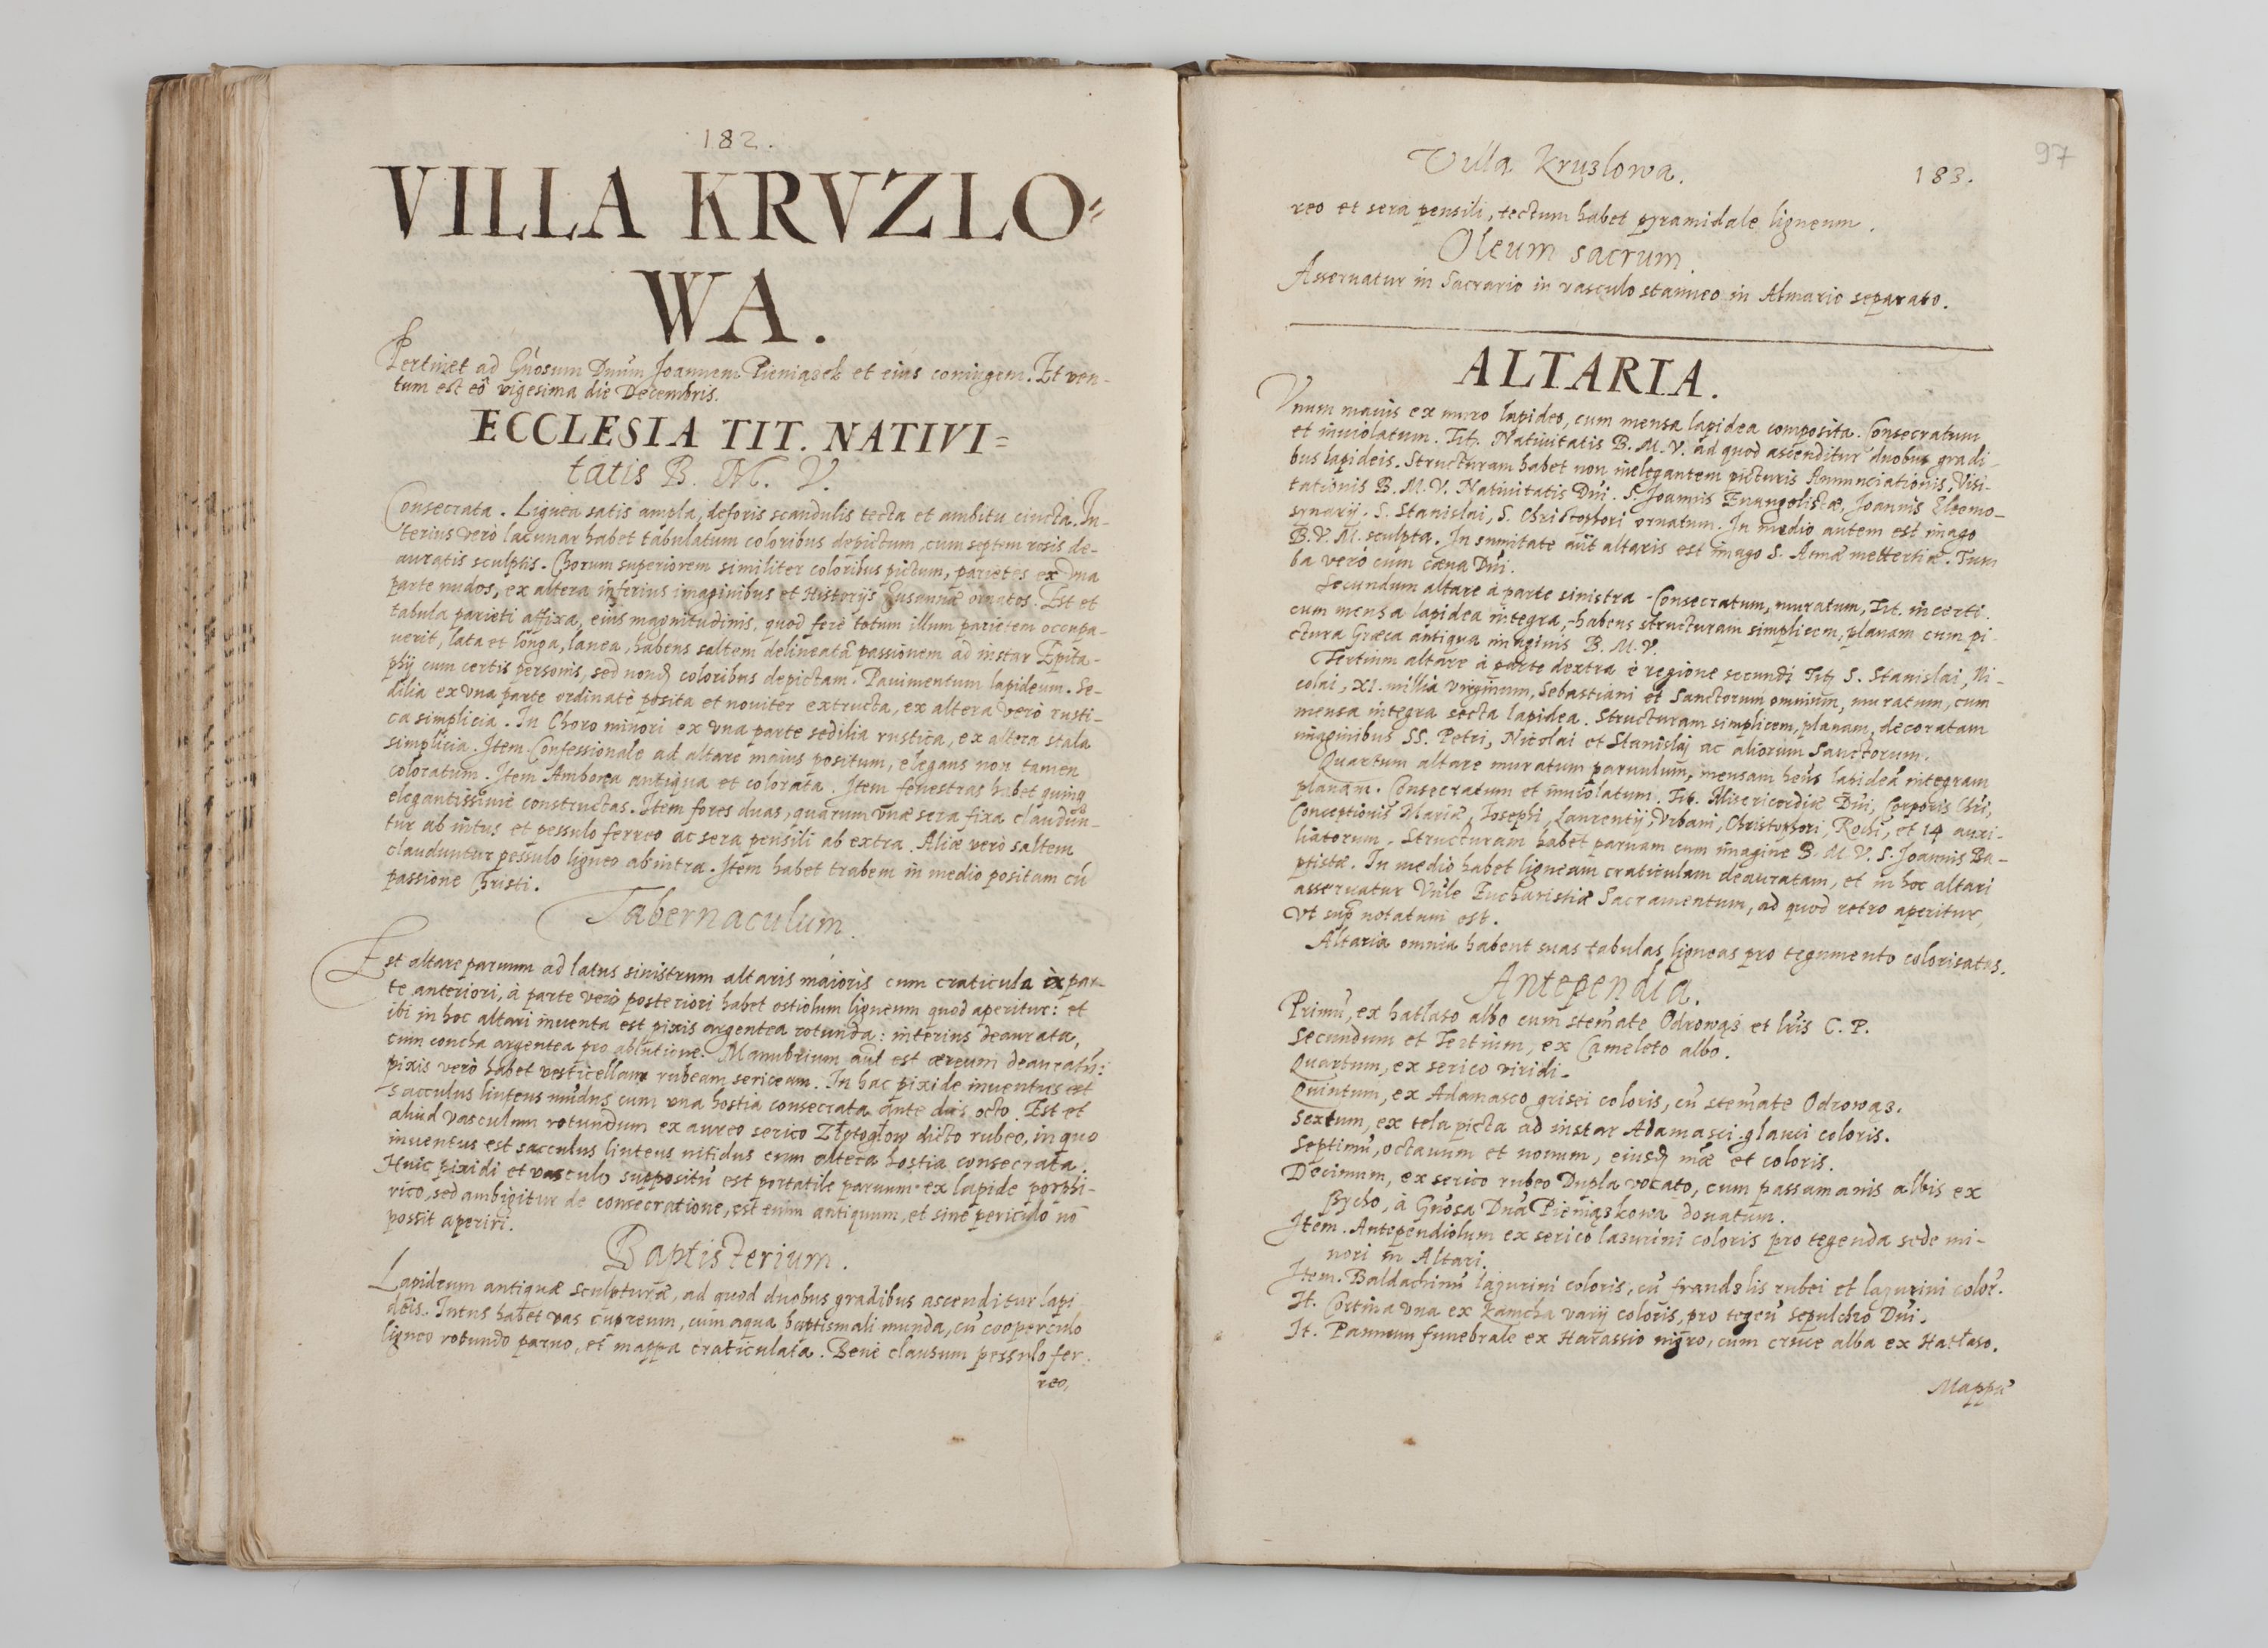 182.
VILLA KRVZLO=
WA.
Pertinet ad Gnosum Dnum Joannem Pieniązek et eius coniugem. Et ven-
tum est eo vigesima die Decembris.
ECCLESIA TIT. NATIVI=
tatis B. M. V.
Consecrata. Lignea satis ampla, deforis scandulis tecta et ambitu cincta. In-
terius verò lacunar habet tabulatum coloribus depictum, cum septem rosis de-
auratis sculptis. Chorum superiorem similiter coloribus pictum, parietes ex vna
parte nudos, ex altera inferius imaginibus et Historijs Susannæ ornatos. Est et
tabula parieti affixa, eius magnitudinis, quod ferè totum illum parietem occupa-
uerit, lata et longa, lanea, habens saltem delineatã passionem ad instar Epita-
phij cum certis personis, sed nondũ coloribus depictam. Pauimentum lapideum. Se-
dilia ex vna parte ordinatè posita et nouiter extructa, ex altera verò rusti-
ca simplicia. In Choro minori ex vna parte sedilia rustica, ex altera scala
simplicia. Item Confessionale ad altare maius positum, elegans non tamen
coloratum. Item Ambona antiqua et colorata. Item fenestras habet quinq
elegantissimè constructas. Item fores duas, quarum vnæ sera fixa claudun-
tur ab intus et pessulo ferreo ac sera pensili ab extra. Aliæ verò saltem
clauduntur pessulo ligneo abintra. Item habet trabem in medio positam cũ
passione Christi.
Tabernaculum.
Est altare paruum ad latus sinistrum altaris maioris cum craticula ex par-
te anteriori, à parte verò posteriori habet ostiolum ligneum quod aperitur: et
ibi in hoc altari inuenta est pixis argentea rotunda: interius deaurata,
cum concha argentea pro ablutione. Manubrium aũt est æreum deauratũ:
pixis verò habet vesticellam rubeam sericeam. In hac pixide inuentus est
sacculus linteus mũdus cum vna hostia consecrata ante dies octo. Est et
aliud vasculum rotundum ex aureo serico Złotogłow dicto rubeo, in quo
inuentus est sacculus linteus nitidus cum altera hostia consecrata.
Huic pixidi et vasculo suppositũ est portatile paruum ex lapide porphi-
rico, sed ambigitur de consecratione, est enim antiquum, et sine periculo nõ
possit aperiri.
Baptisterium.
Lapideum antiquæ sculpturæ, ad quod duobus gradibus ascenditur lapi
deis. Intus habet vas cupreum, cum aqua baptismali munda, cũ cooperculo
ligneo rotundo paruo, et mappa craticulata. Benè clausum pessulo fer.
reo,
97
Villa Kruzlowa.
183.
reo et sera pensili, tectum habet pyramidale ligneum.
Oleum sacrum.
Asseruatur in Sacrario in vasculo stanneo in Almario separato.
ALTARIA.
Vnum maius ex muro lapideo, cum mensa lapidea composita. Consecratum
et inuiolatum. Tit. Natiuitatis B. M. V. ad quod ascenditur duobus gradi-
bus lapideis. Structuram habet non inelegantem picturis Annunciationis, Visi-
tationis B. M. V. Natiuitatis Dni. S. Joannis Euangelistæ, Joannis Eleemo-
synarij. S. Stanislai, S. Christophori ornatum. In medio autem est imago
B. V. M. sculpta. In sumitate aũt altaris est imago S. Annæ mettertiæ. Tum
ba verò cum cæna Dni.
Secundum altare à parte sinistra Consecratum, muratum, Tit. incerti
cum mensa lapidea integra, habens structuram simplicem, planam cum pi-
ctura Græca antiqua imaginis B. M. V.
Tertium altare à parte dextra è regione secundi Tit. S. Stanislai, Ni-
colai, XI. millia virginum, Sebastiani et Sanctorum omnium, muratum, cum
mensa integra secta lapidea. Structuram simplicem, planam, decoratam
imaginibus SS. Petri, Nicolai et Stanislaj ac aliorum Sanctorum.
Quartum altare muratum paruulum, mensam hẽns lapideã integram
planam. Consecratum et inuiolatum. Tit. Misericordiæ Dni, Corporis Chri,
Conceptionis Mariæ, Josephi, Laurentij, Vrbani, Christophori, Rochi, et 14 auxi-
liatorum. Structuram habet paruam cum imagine B. M. V. S. Joannis Ba-
ptistæ. In medio habet ligneam craticulam deauratam, et in hoc altari
asseruatur Vnle Eucharistiæ Sacramentum, ad quod retro aperitur,
vt sup notatum est.
Altaria omnia habent suas tabulas ligneas pro tegumento colorisatas.
Antependia.
Primũ, ex hatłaso albo cum stemate Odrowąż et lris C. P.
Secundum et Tertium, ex Cameleto albo.
Quartum, ex serico viridi.
Quintum, ex Adamasco grisei coloris, cũ stemate Odrowąz.
Sextum, ex tela picta ad instar Adamasci glauci coloris.
Septimũ, octauum et nonum, eiusd mæ et coloris.
Decimum, ex serico rubeo Dupla vocato, cum passamanis albis ex
Bycho, à Gnosa Dna Pieniązkowa donatum.
Item. Antependiolum ex serico lazurini coloris pro tegenda sede mi-
nori in Altari.
Item. Baldachinũ lazurini coloris, cũ frandzlis rubei et lazurini color.
It. Cortina vna ex Kamcha varij coloris, pro tegen sepulchro Dni.
It. Pannum funebrale ex Harassio nigro, cum cruce alba ex Hatłaso.
Mappæ